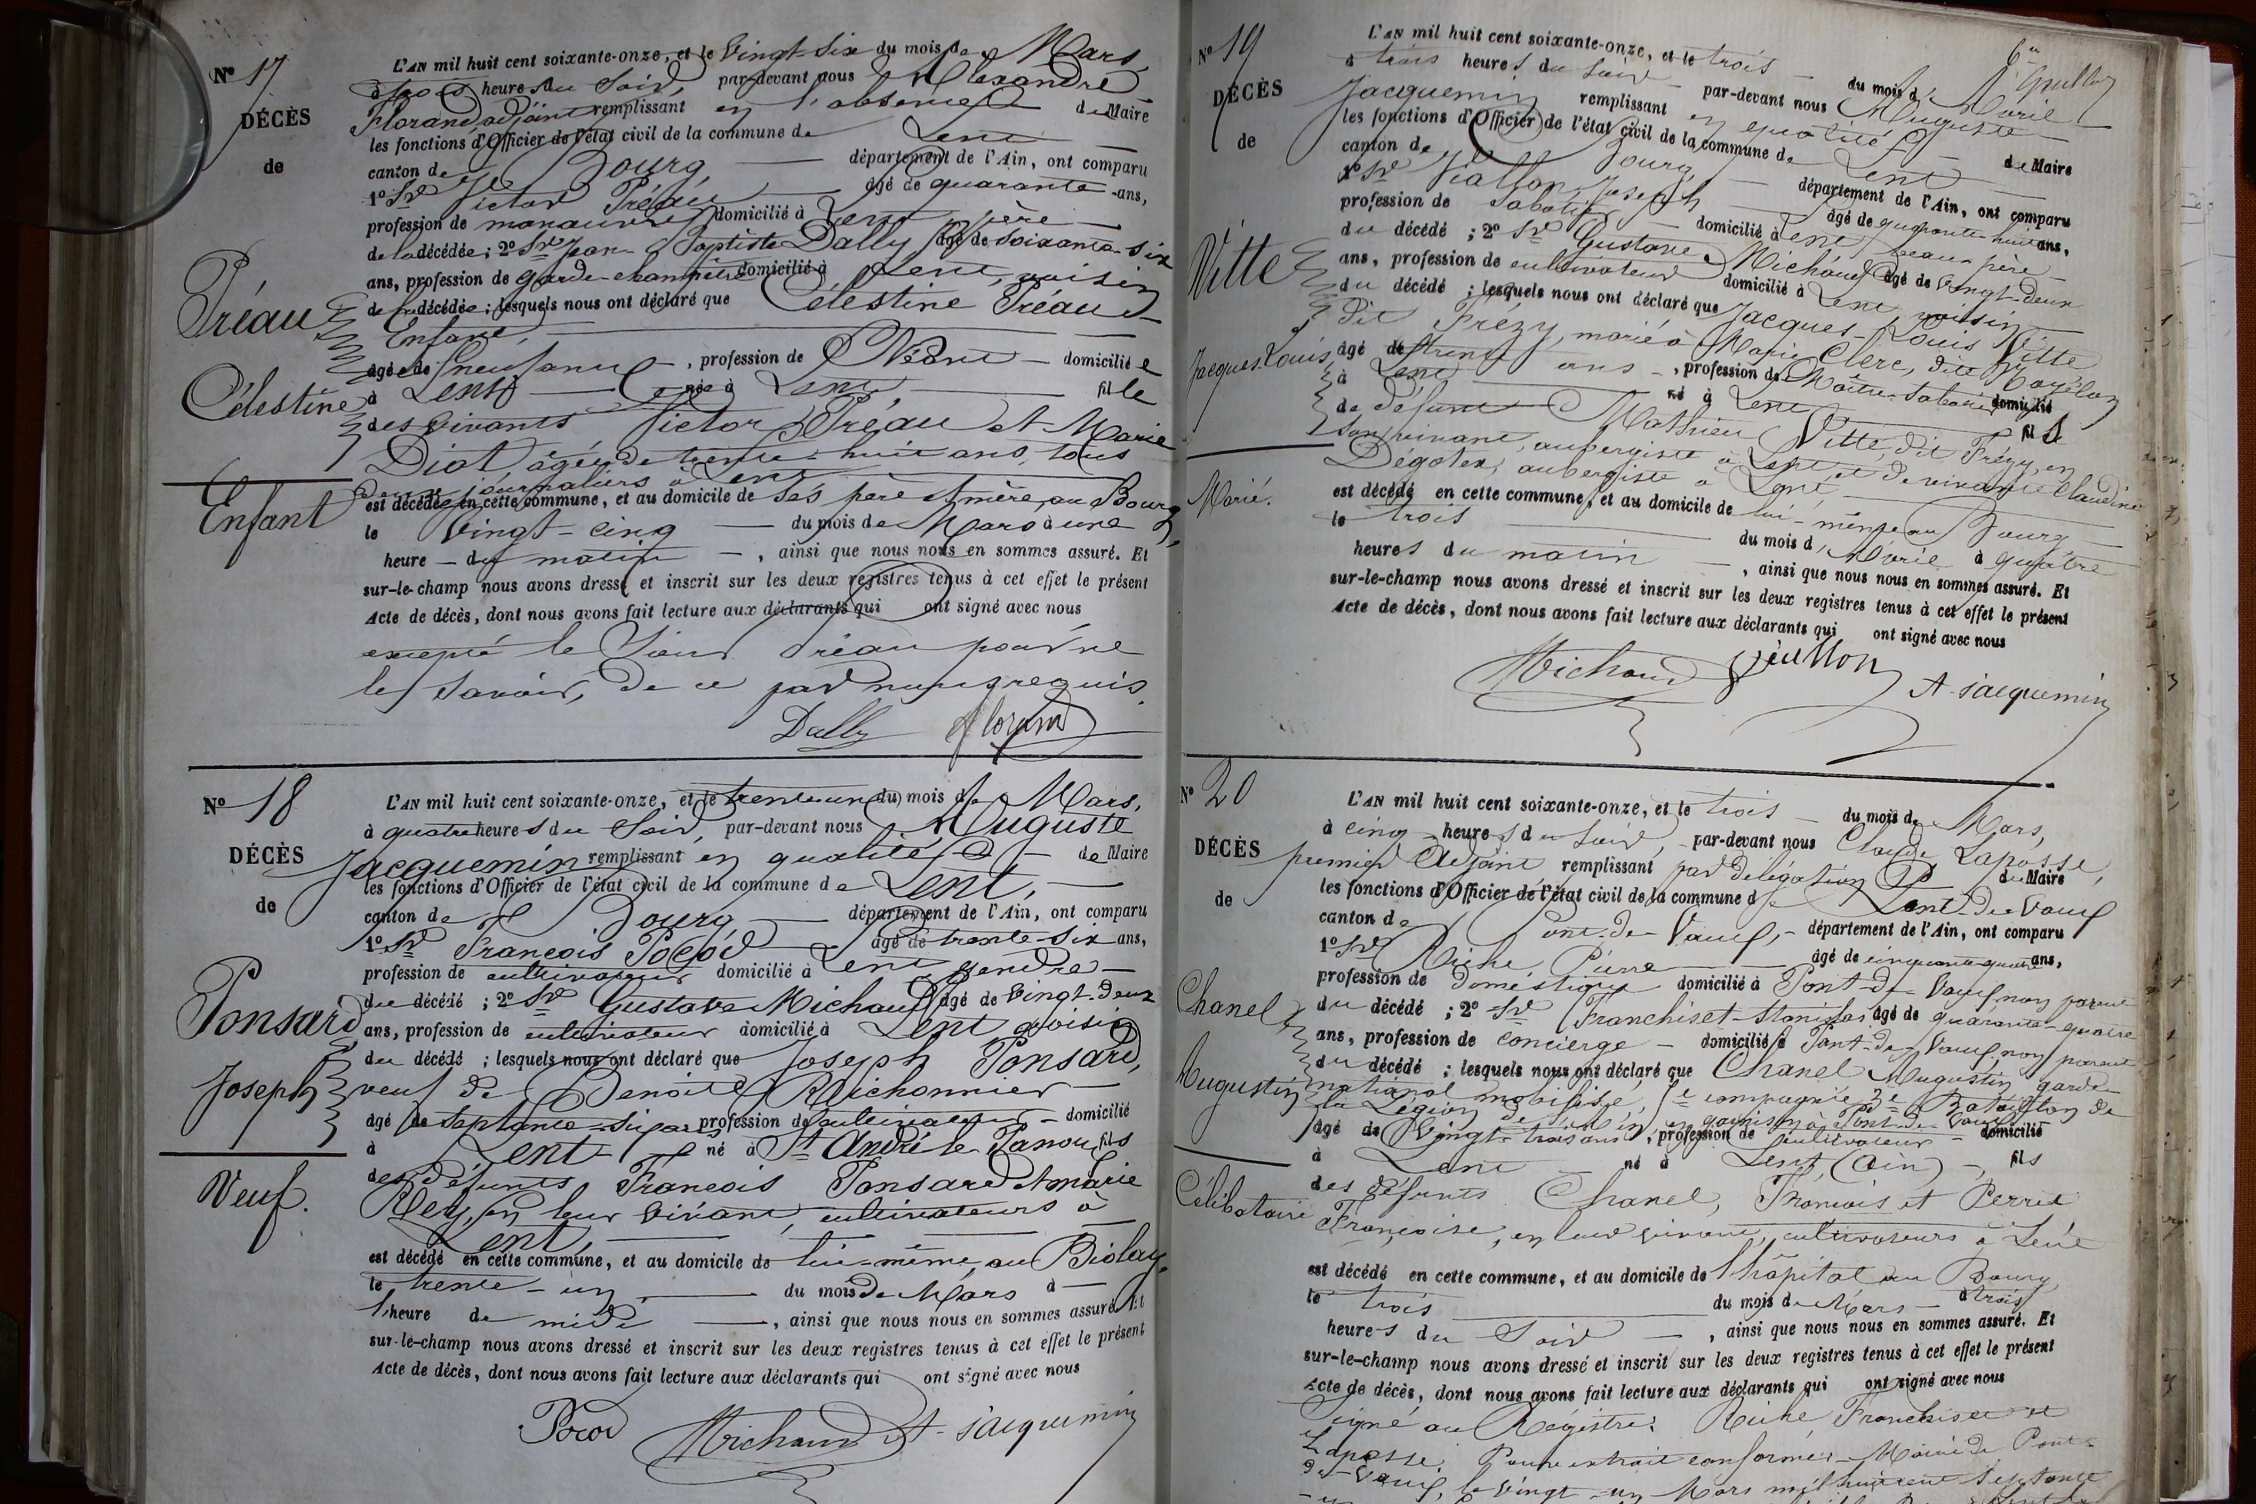 N° 17
DÉCÈS
de
Préau
Célestine
Enfant
L'AN mil huit cent soixante-onze, et le vingt-six du mois de Mars,
à trois heures du Soir, par-devant nous Alexandre
Florand adjoint remplissant en l'absence du Maire
les fonctions d'Officier de l'état civil de la commune de Lent
canton de Bourg, département de l'Ain, ont comparu
1° Sr Victor Préau âgé de quarante ans,
profession de manœuvre domicilié à Lent père
de la décédée ; 2° Sr Jean Baptiste Dally âgé de soixante-six
ans, profession de garde-champêtre domicilié à Lent, voisin
de la décédée ; lesquels nous ont déclaré que Célestine Préau
Enfant,
âgée de neuf ans, profession de Néant domiciliée
à Lent née à Lent fille
des vivants Victor Préau et Marie
Diot, âgée de trente-huit ans, tous
deux journaliers à Lent
est décédée en cette commune, et au domicile de ses père et mère, au Bourg,
le vingt-cinq du mois de Mars à une
heure du matin, ainsi que nous nous en sommes assuré. Et
sur-le-champ nous avons dressé et inscrit sur les deux registres tenus à cet effet le présent
Acte de décès, dont nous avons fait lecture aux déclarants qui ont signé avec nous
excepté le Sieur Préau pour ne
le savoir, de ce par nous requis.
Dally Florand
N° 18
DÉCÈS
de
Ponsard
Joseph
Veuf.
L'AN mil huit cent soixante-onze, et le trente-un du mois de Mars,
à quatre heures du Soir, par-devant nous Auguste
Jacquemin remplissant en qualité de Maire
les fonctions d'Officier de l'état civil de la commune de Lent,
canton de Bourg département de l'Ain, ont comparu
1° Sr François Pocod âgé de trente-six ans,
profession de cultivateur domicilié à Lent gendre
du décédé ; 2° Sr Gustave Michaud âgé de vingt-deux
ans, profession de cultivateur domicilié à Lent voisin
du décédé ; lesquels nous ont déclaré que Joseph Ponsard,
veuf de Benoite Michonnier
âgé de septante-six ans profession de cultivateur domicilié
à Lent né à St André le Panoux fils
des défunts François Ponsard et Marie
Rey, en leur vivant, cultivateurs à
Lent,
est décédé en cette commune, et au domicile de lui-même, au Biolay,
le trente-un du mois de Mars à
l'heure de midi, ainsi que nous nous en sommes assuré. Et
sur-le-champ nous avons dressé et inscrit sur les deux registres tenus à cet effet le présent
Acte de décès, dont nous avons fait lecture aux déclarants qui ont signé avec nous
Pocod Michaud A. Jacquemin
N° 19
DÉCÈS
de
Vitte
Jacques Louis
Marié.
L'AN mil huit cent soixante-onze, et le trois du mois d'Avril
à trois heures du Soir par-devant nous Auguste
Jacquemin remplissant en qualité de Maire
les fonctions d'Officier de l'état civil de la commune de Lent
canton de Bourg, département de l'Ain, ont comparu
1° Sr Viallon Joseph âgé de quarante-huit ans,
profession de sabotier domicilié à Lent beau-père
du décédé ; 2° Sr Gustave Michaud âgé de vingt-deux
ans, profession de cultivateur domicilié à Lent, voisin
du décédé ; lesquels nous ont déclaré que Jacques-Louis Vitte
dit Frézy, marié à Marie Clerc, dite
âgé de trente ans, profession de Maître-sabotier domicilié
à Lent né à Lent fils
de défunt Mathieu Vitte, dit Frézy, en
son vivant, aubergiste à Lent et de vivante Claudine
Dégotex, aubergiste à Lent
est décédé en cette commune, et au domicile de lui-même au Bourg
le trois du mois d'Avril à quatre
heures du matin, ainsi que nous nous en sommes assuré. Et
sur-le-champ nous avons dressé et inscrit sur les deux registres tenus à cet effet le présent
Acte de décès, dont nous avons fait lecture aux déclarants qui ont signé avec nous
Michaud Viallon A. Jacquemin
N° 20
DÉCÈS
de
Chanel
Augustin
Célibataire
L'AN mil huit cent soixante-onze, et le trois du mois de Mars,
à cinq heures du soir, par-devant nous Claude Laposse,
premier Adjoint remplissant par délégation du Maire
les fonctions d'Officier de l'état civil de la commune de Pont-de-Vaux
canton de Pont-de-Vaux, département de l'Ain, ont comparu
1° Sr Riche Pierre âgé de cinquante-quatre ans,
profession de domestique domicilié à Pont-de-Vaux, non parent
du décédé ; 2° Sr Franchiset Stanislas âgé de quarante-quatre
ans, profession de concierge domicilié à Pont-de-Vaux, non parent
du décédé ; lesquels nous ont déclaré que Chanel Augustin garde
national mobilisé, compagnie 3e Bataillon de
la Légion de l'Ain en garnison à Pont-de-Vaux
âgé de vingt-trois ans, profession de cultivateur domicilié
à Lent né à Lent (Ain), fils
des défunts Chanel, François et Perret
Françoise, en leur vivant, cultivateurs à Lent
est décédé en cette commune, et au domicile de l'hôpital au Bourg,
le trois du mois de Mars à trois
heures du soir, ainsi que nous nous en sommes assuré. Et
sur-le-champ nous avons dressé et inscrit sur les deux registres tenus à cet effet le présent
Acte de décès, dont nous avons fait lecture aux déclarants qui ont signé avec nous
Signé au Registre: Riche Franchiset et
Laposse. Pour extrait conforme: Mairie de Pont-
de-Vaux, le vingt-un Mars mil huit cent septante